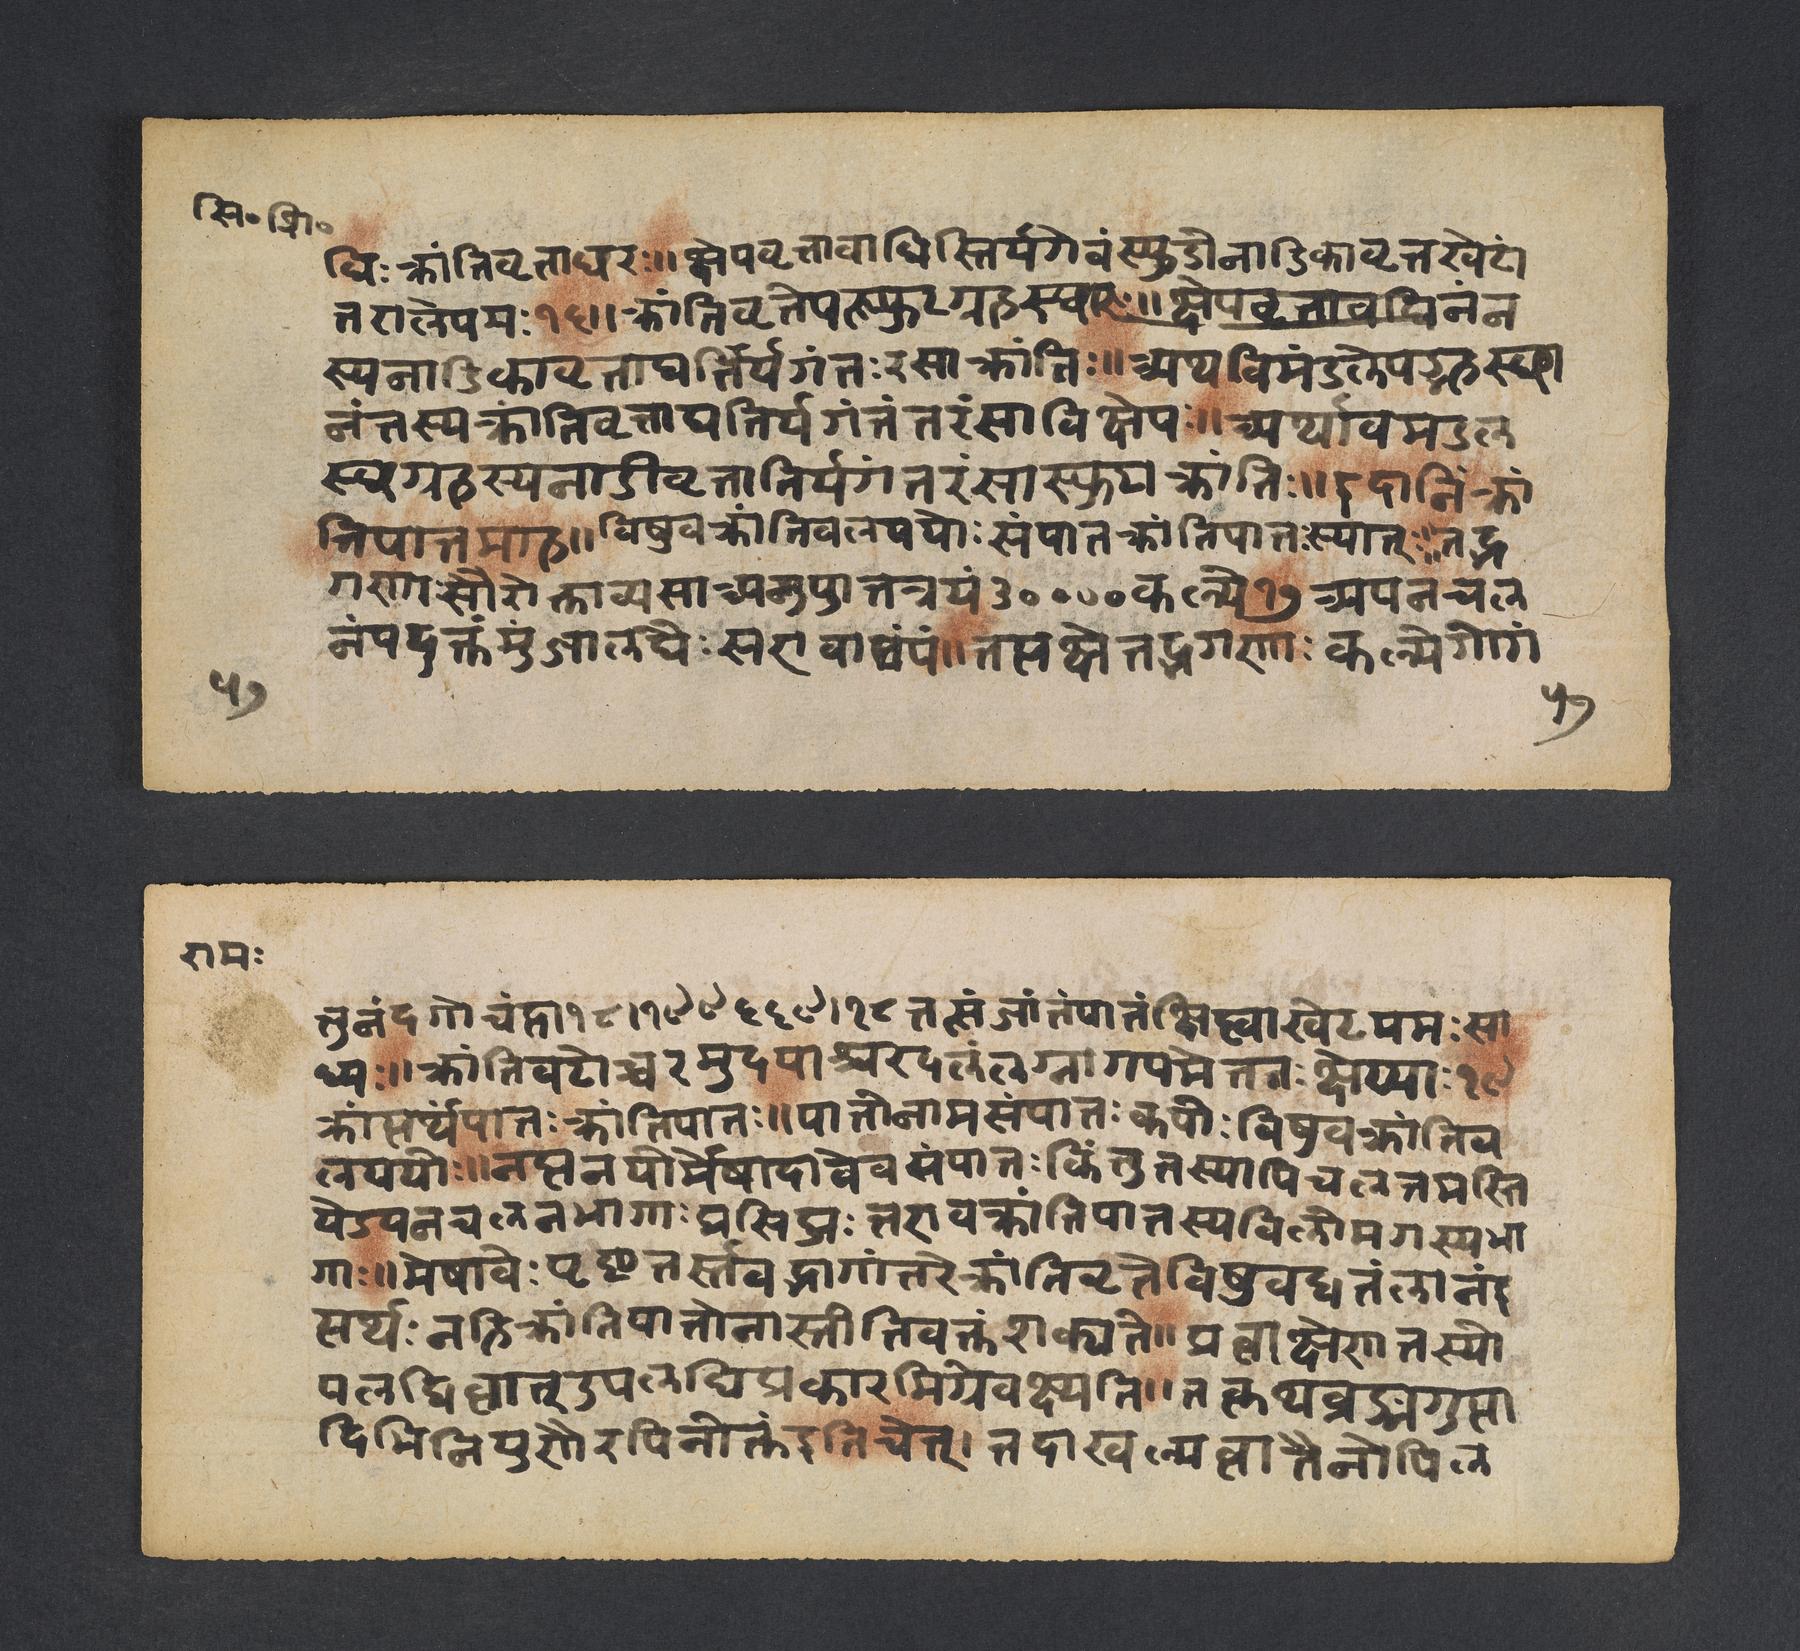 सि॰ शि॰
धिः क्रांतिवृत्ताघरः॥ क्षेपवृत्तावाधिस्तिर्यगेवं स्फुडोनाडिकावृत्तखेटां
तरालेपमः १६॥ क्रांतिवृत्तेपस्फुटग्रहस्थानः॥ क्षेपवृत्तावधि नंन
स्यनाडिकावृत्ताघर्त्तिर्यगंतः रसा क्रांतिः॥ अथ विमंडलेपग्रहस्था
नं तस्य क्रांतिवृत्ताघतिर्यगंतंतरं सा विक्षेपः॥ अर्थावमडल
स्थग्रहस्यनाडीवृत्तातिर्यगंतरं सा स्फुटा क्रांतिः॥ इदानिं क्रां
तिपातमाह॥ विषुवक्रांतिवलययोः संपात क्रांतिपातः स्यात्॥ तद्भ
गणाः सौरोक्ताव्यसा अयुतत्रयं ३०००० कल्पे १७ अयनचल
नं यदुक्तं मुंजालद्यैः स एवायं॥ तत्पक्षे तद्भगणाः कल्पे गोगं
५७
५७
रामः
त्तुनंदगोचंद्रा १८।१९९६६९।१८ तत्संजातं पातं क्षिप्त्वा खेटपमः सा
ध्यः॥ क्रांतिवशोच्चरमुदयाश्चरदलंलग्नागपमे ततः क्षेप्याः १९
क्रांत्पर्थंपातः क्रांतिपातः॥ पातोनाम संपातः कयोः विषुवक्रांतिव
लययोः॥ नह्मनयोर्मेषादावेव संपातः किंतु तस्यापि चलनमस्ति
येऽयनचलनभागाः प्रसिद्धाः तएव क्रांतिपातस्य विलोमगस्य भा
गाः॥ मेषावेः पृष्ठातर्स्तावद्भागांतरे क्रांतिवृत्ते विषुवद्वृत्तं लानं इ
त्पर्थः नहि क्रांतिपातोनास्तीति वक्तुं शक्यते॥ प्रत्यक्षेण तस्यो
पलब्धित्वात् उपलब्धिप्रकारमिग्रे वक्ष्यति॥ तत्कथं ब्रह्मगुप्ता
दिभिनिपुणैरपिनोक्त इति चेत्। तदा स्वल्पत्वात्तैर्नोपिल